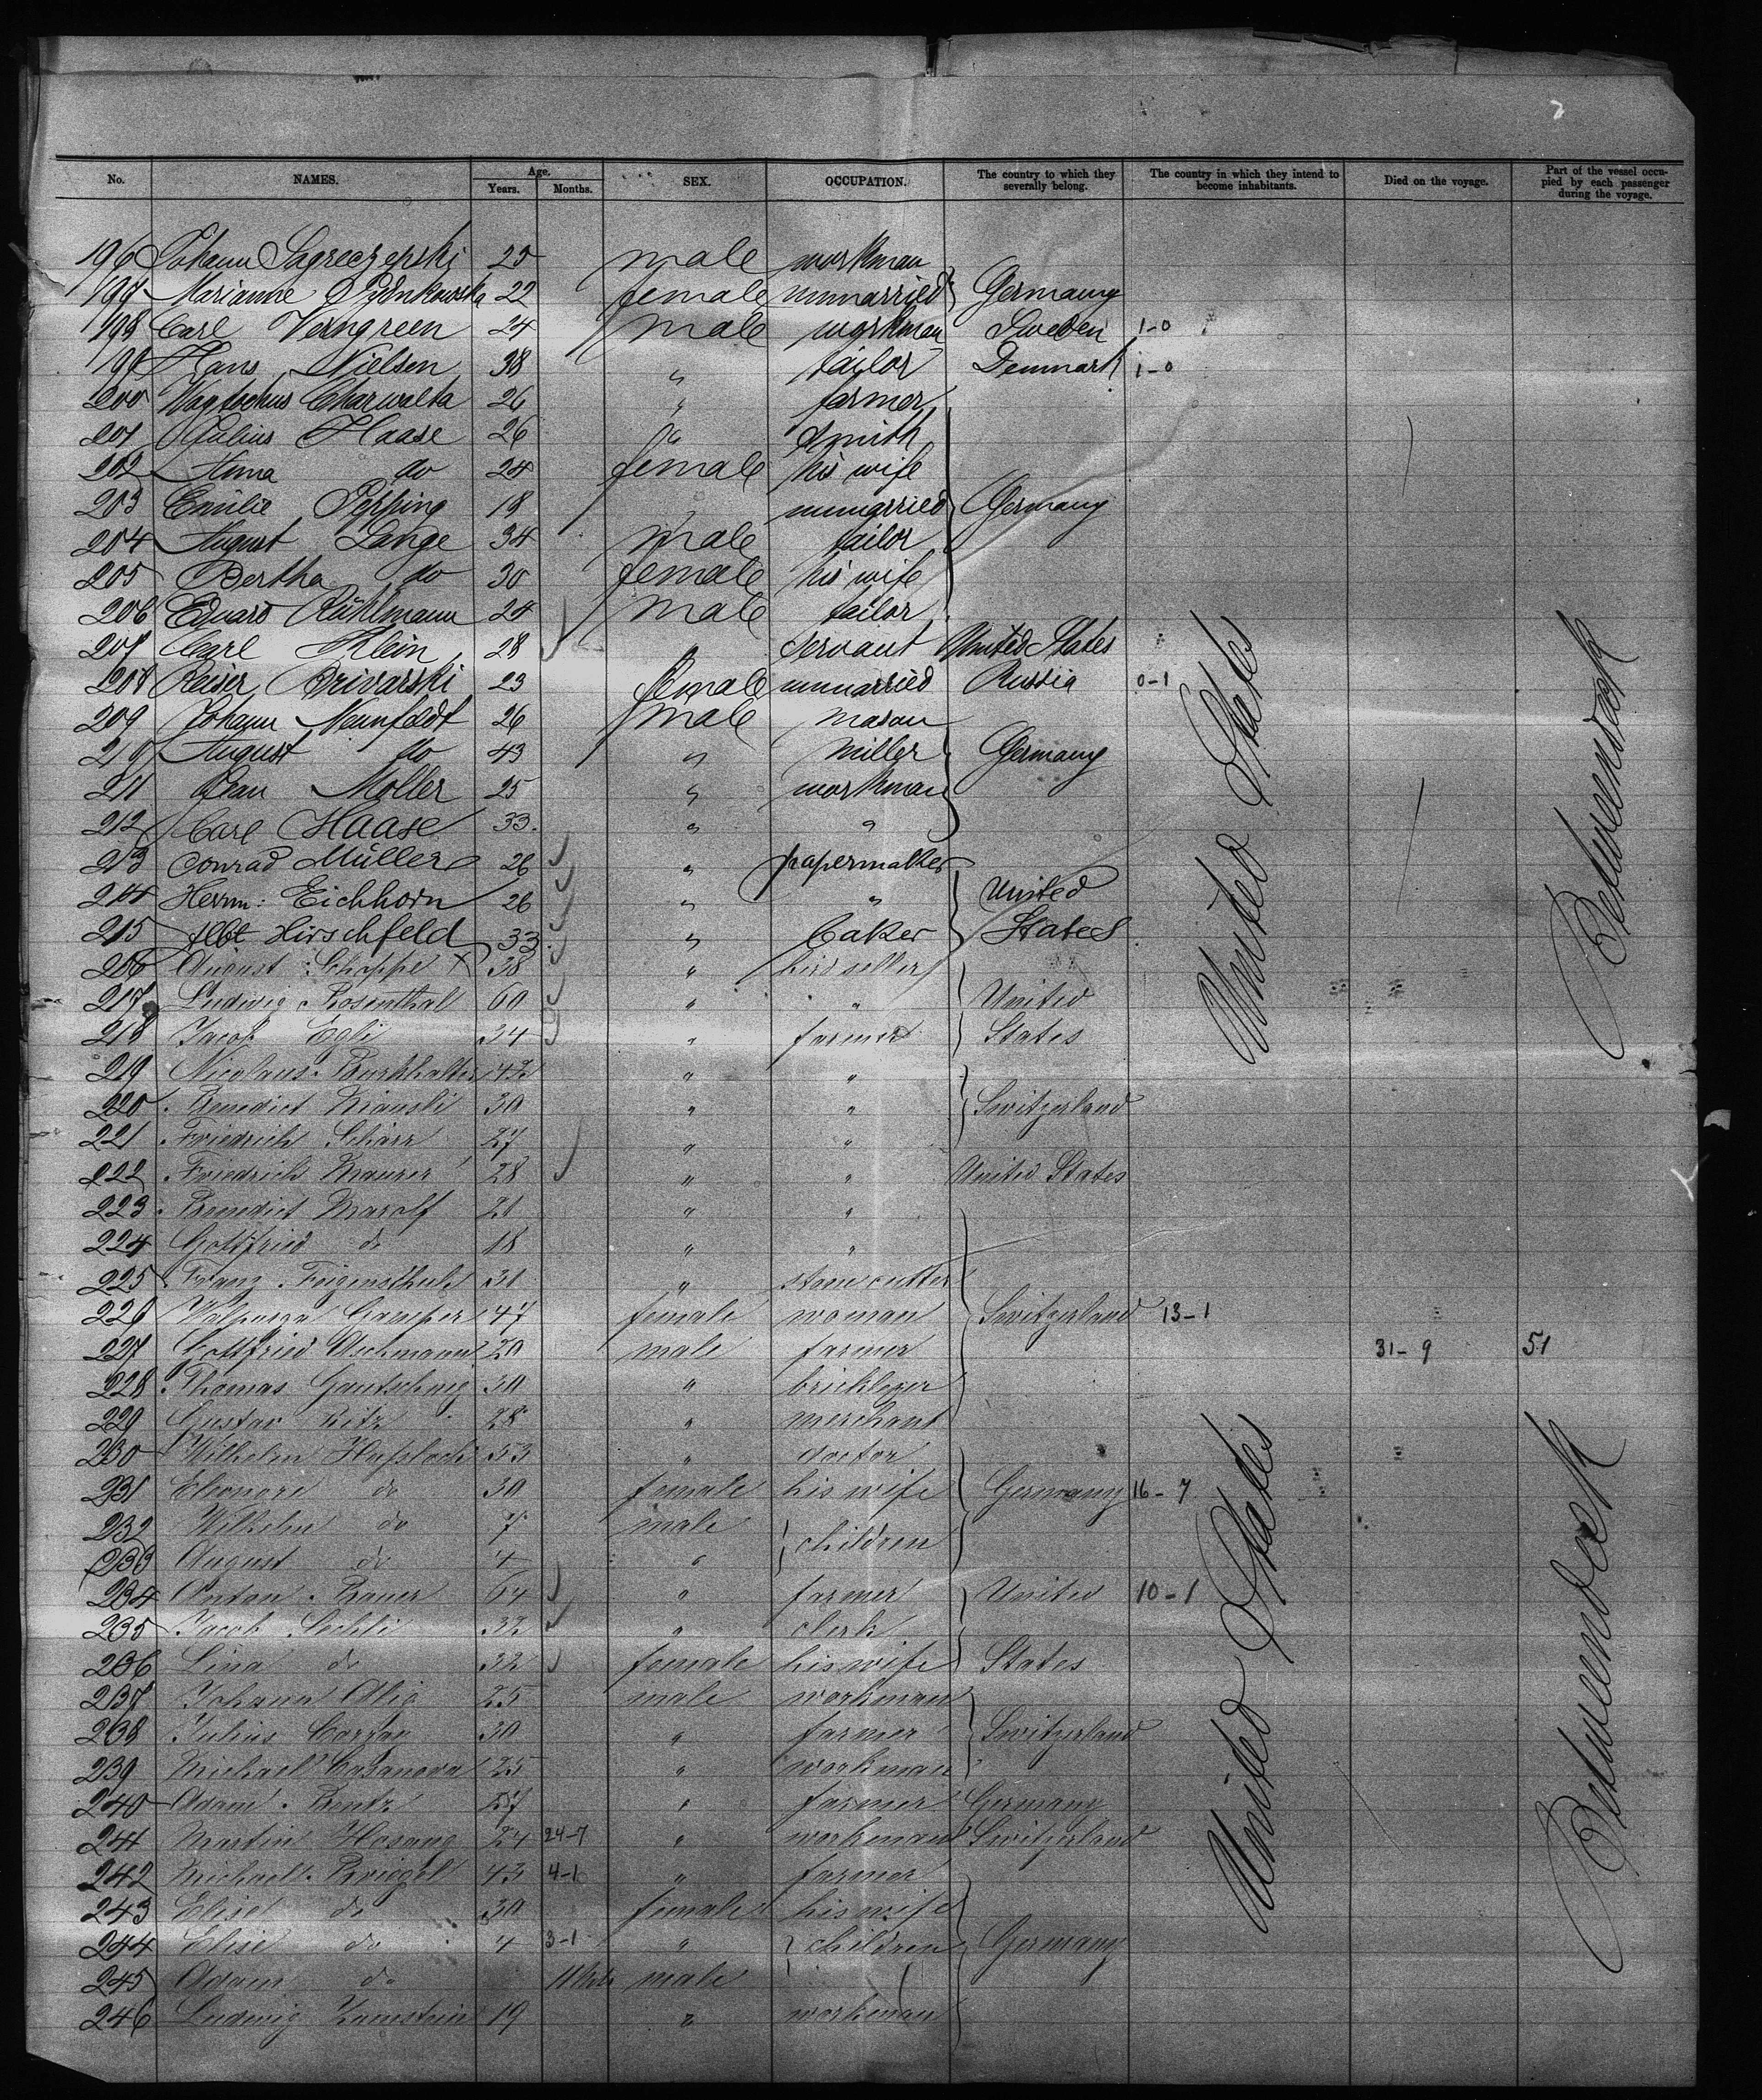 No. NAMES. Age. Years. Months. SEX. OCCUPATION. The country to which they severally belong. The country in which they intend to become inhabitants. Died on the voyage. Part of the vessel occupied by each passenger during the voyage.
196 Johann 25 male workman
197 Marianne 22 female unmarried Germany
198 Carl Verngreen 24 male workman Sweden 1-0
199 Hans Nielsen 38 " tailor Denmark 1-0
200 Charwalta 26 " farmer
201 Julius Haase 26 " Smith
202 Anna do 24 female his wife
203 Emilie Pepping 18 unmarried Germany
204 August Lange 34 male tailor
205 Bertha do 30 female his wife
206 Eduard Rühlmann 24 male tailor
207 Carl Klein 28 " Servant United States
208 Reiser Brivarski 23 female unmarried Russia 0-1
209 Johann 26 male mason
210 August do 43 " miller Germany
211 Jean Moller 25 " workman
212 Carl Haase 33. " "
213 Conrad Müller 26 " papermaker
214 Herm: Eichhorn 26 " " United
215 Albt Hirschfeld 33. " baker States
216 August Schoppe x 38 " birdseller
217 Ludwig Rosenthal 60 " " United
218 Jacob Egli 34 " farmer States
219 Nicolaus Burkhalter 42 " "
220 Benedict 30 " " Switzerland
221 Friedrich Schärr 27 " "
222 Friedrich Maurer 28 " " United States
223 Benedict Marolf 21 " "
224 Gottfried do 18 " "
225 Franz 31 " stonecutter
226 Walpurga Gamper 47 female woman Switzerland 13-1
227 Gottfried Aschmann 20 male farmer 31-9 51
228 Thomas Gautschnig 30 " bricklayer
229 Gustav Ritz 28 " merchant
230 Wilhelm 53 " doctor
231 Eleonore do 30 female his wife Germany 16-7
232 Wilhelm do 7 male children
233 August do 4 "
234 Anton Bauer 64 " farmer United 10-1
235 Jacob Sechli 32 " clerk
236 Lina do 32 female his wife States
237 Johann Alig 25 male workman
238 Julius 30 " farmer Switzerland
239 Michael Casanova 25 " workman
240 Adam Bentz 57 " farmer Germany
241 Martin Hosang 24 24-7 " workman Switzerland
242 Michael Briegel 43 4-1 " farmer
243 Elise do 30 female his wife
244 Elise do 4 3-1 " children Germany
245 Adam do 11 male
246 Ludwig 19 " workman
United States
Betweendeck
United States
Betweendeck